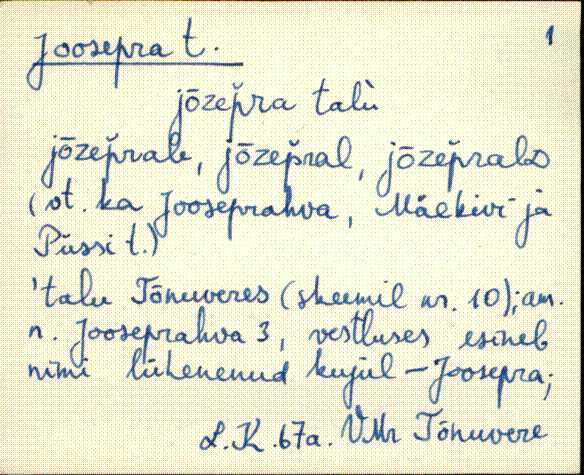 Joosepra t. 1
jōzep̌ra talù
jōzep̌rale, jōzep̌ral, jōzep̌ralD
(vt. ka Jooseprahva, Mäekivi- ja
Püssi t.)
'talu Tõnuveres (skeemil nr. 10); am.
n. Jooseprahva 3, vestluses esineb
nimi lühenenud kujul – Joosepra;
L.K. 67a. VMr Tõnuvere